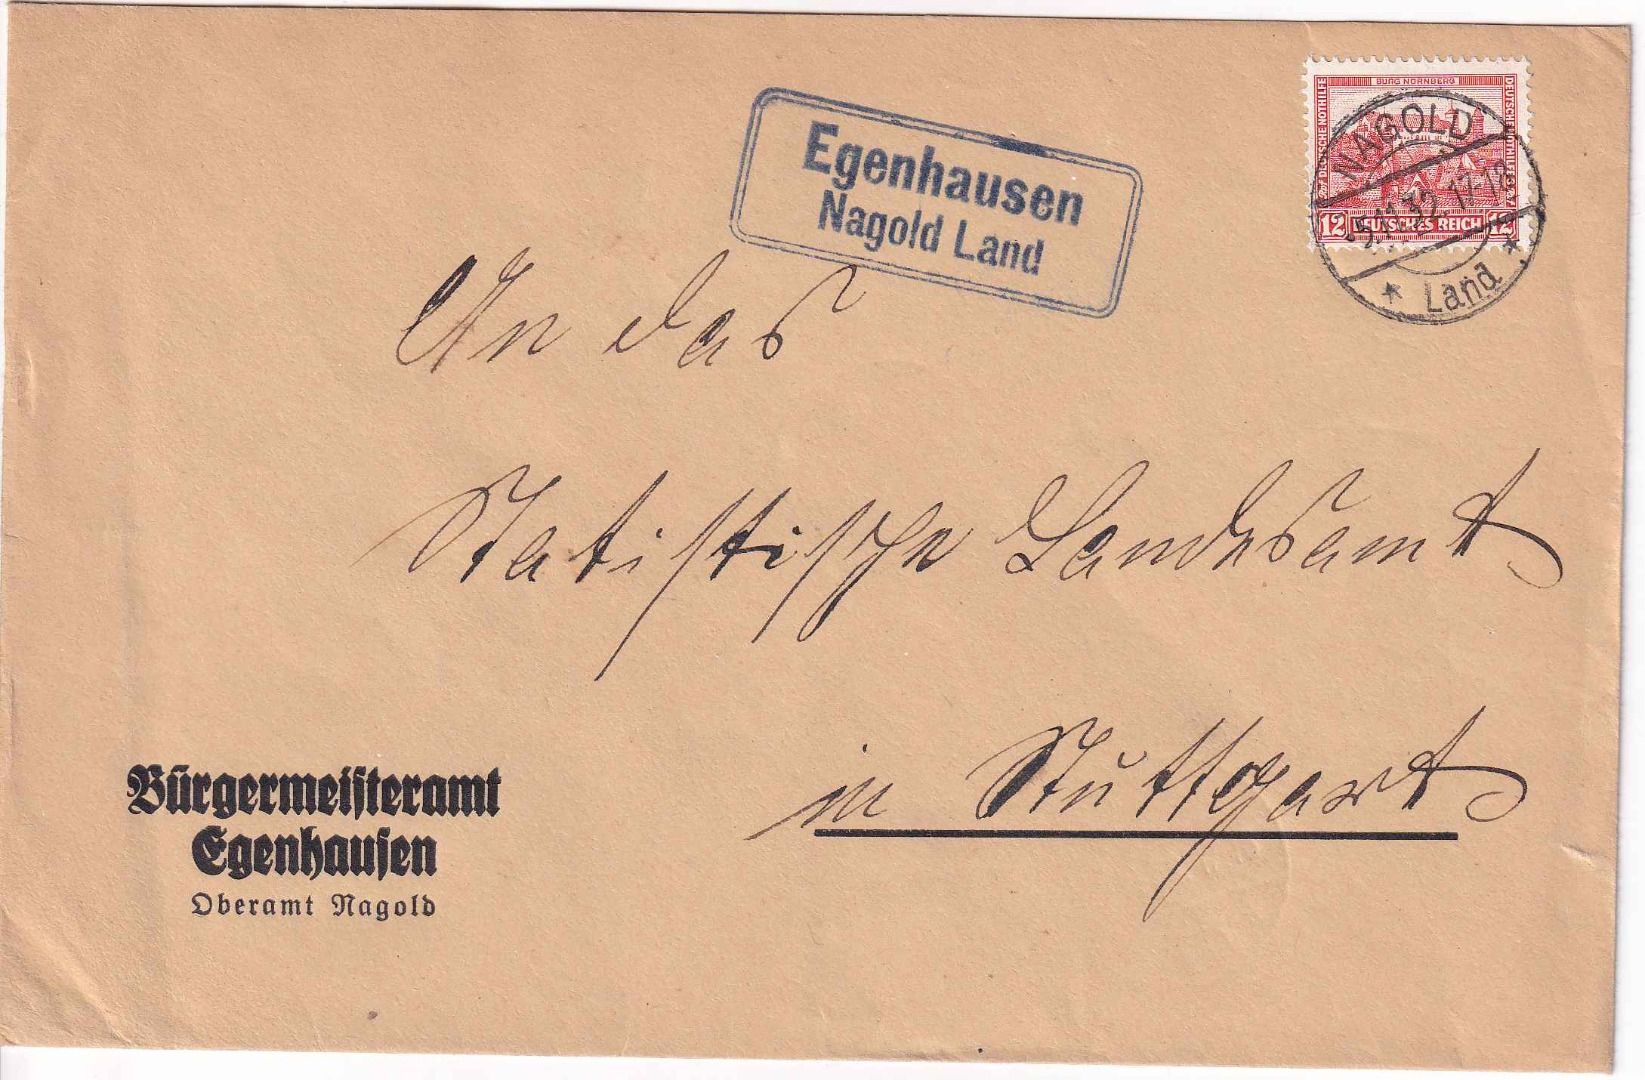 Egenhausen
Nagold Land
BURG NÜRNBERG
DEUTSCHE NOTHILFE
DEUTSCHE NOTHILFE
12 DEUTSCHES REICH 12
NAGOLD
-5.11.32. 17-18
* Land *
An das
Statistische Landesamt
in Stuttgart
Bürgermeisteramt
Egenhausen
Oberamt Nagold